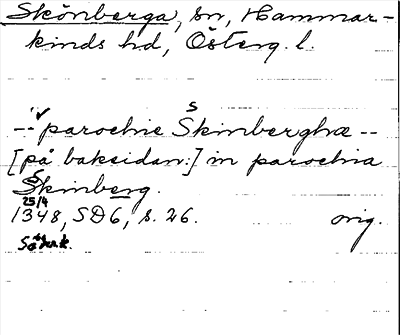 Skönberga, sn, Hammar-
kinds hd, Österg. l.
-- parochie Skinberghæ --
[på baksidan:] in parochia
Skinberg.
25/4
1348, SD6, s. 26. orig.